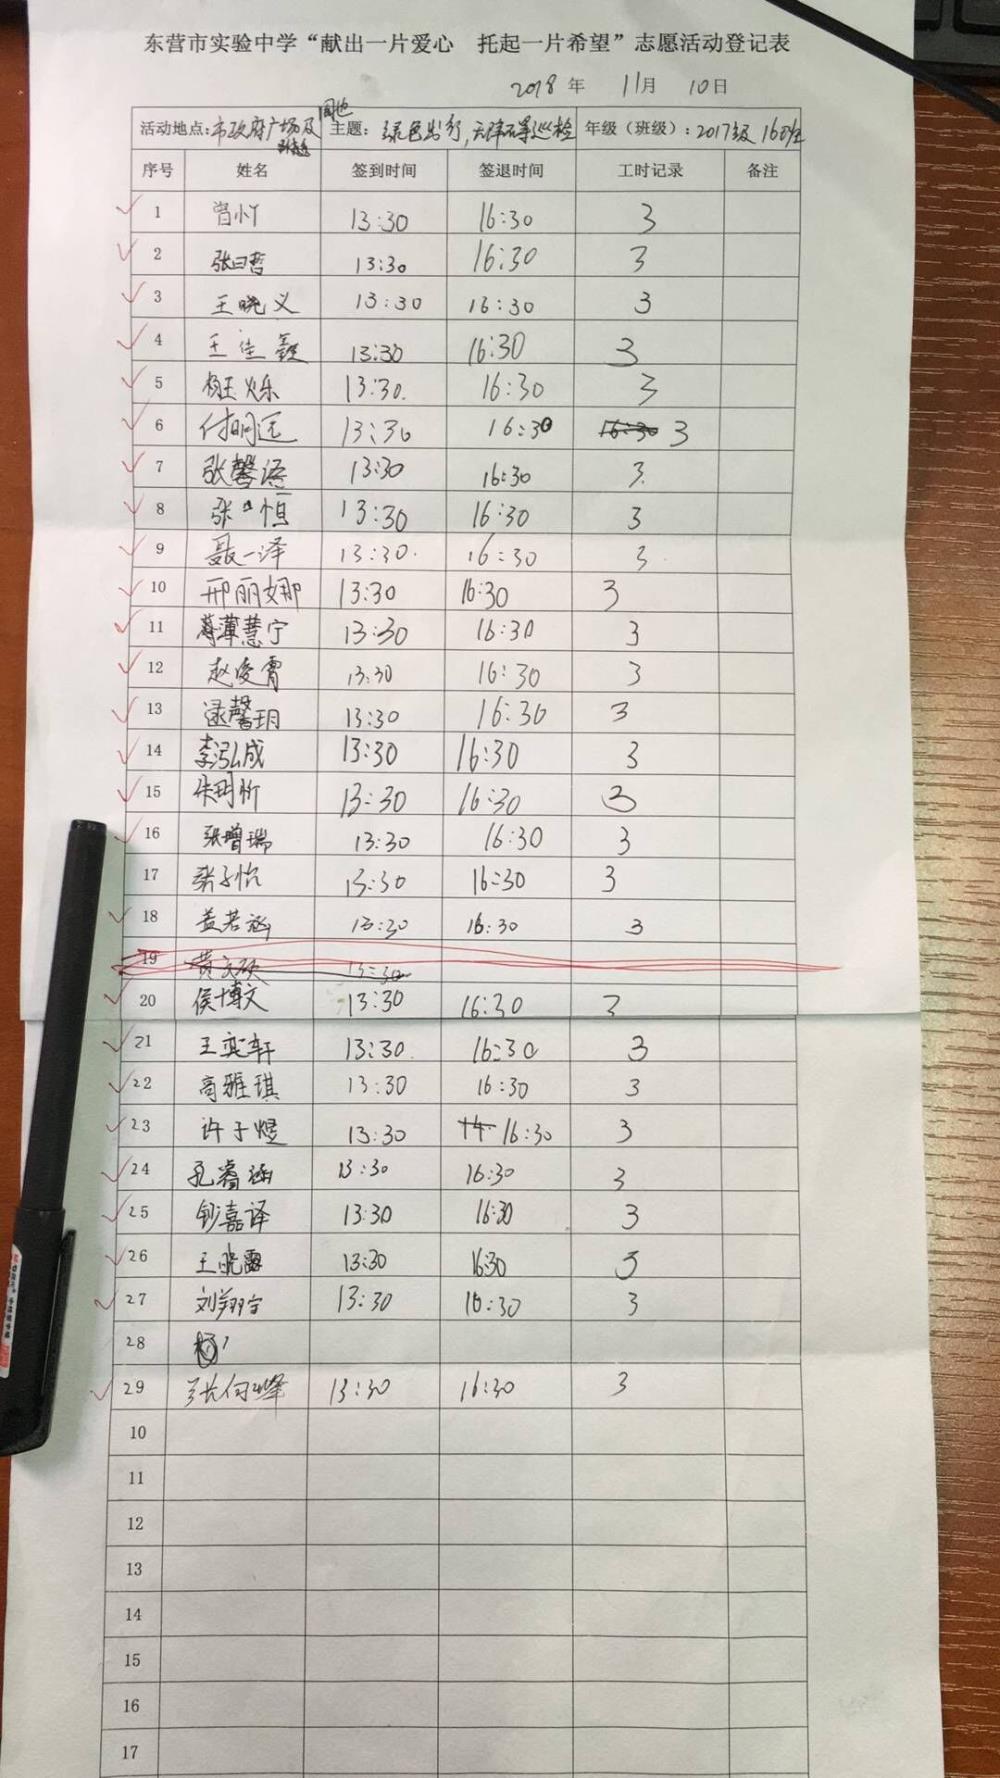 东营市实验中学“献出一片爱心 托起一片希望”志愿活动登记表
2018 年 11月 10日
活动地点:市政府广场及周边 主题:绿色出行, 巡检 年级(班级):2017级16班
序号 姓名 签到时间 签退时间 工时记录 备注
1 13:30 16:30 3
2 张曰哲 13:30 16:30 3
3 王晓义 13:30 16:30 3
4 王佳鑫 13:30 16:30 3
5 杨王烁 13:30. 16:30 3
6 付明远 13:30 16:30 16:30 3
7 张馨语 13:30 16:30 3.
8 张恒 13:30 16:30 3
9 聂一泽 13:30. 16:30 3.
10 邢丽娜 13:30 16:30 3
11 薄慧宁 13:30 16:30 3
12 赵俊霄 13:30 16:30 3
13 逯馨玥 13:30 16:30 3
14 李泓成 13:30 16:30 3
15 朱玥昕 13:30 16:30 3
16 张增瑞 13:30 16:30 3
17 张子怡 13:30 16:30 3
18 盖若涵 13:30 16:30 3
19 黄文硕 13:30
20 侯博文 13:30 16:30 3
21 王奕轩 13:30. 16:30 3
22 高雅琪 13:30 16:30 3
23 许子煜 13:30 14 16:30 3
24 孔睿涵 13:30 16:30 3
25 嘉译 13:30 16:30 3
26 王晓露 13:30 16:30 3
27 刘翔宇 13:30 16:30 3
28
29 张何峰 13:30 16:30 3
10
11
12
13
14
15
16
17